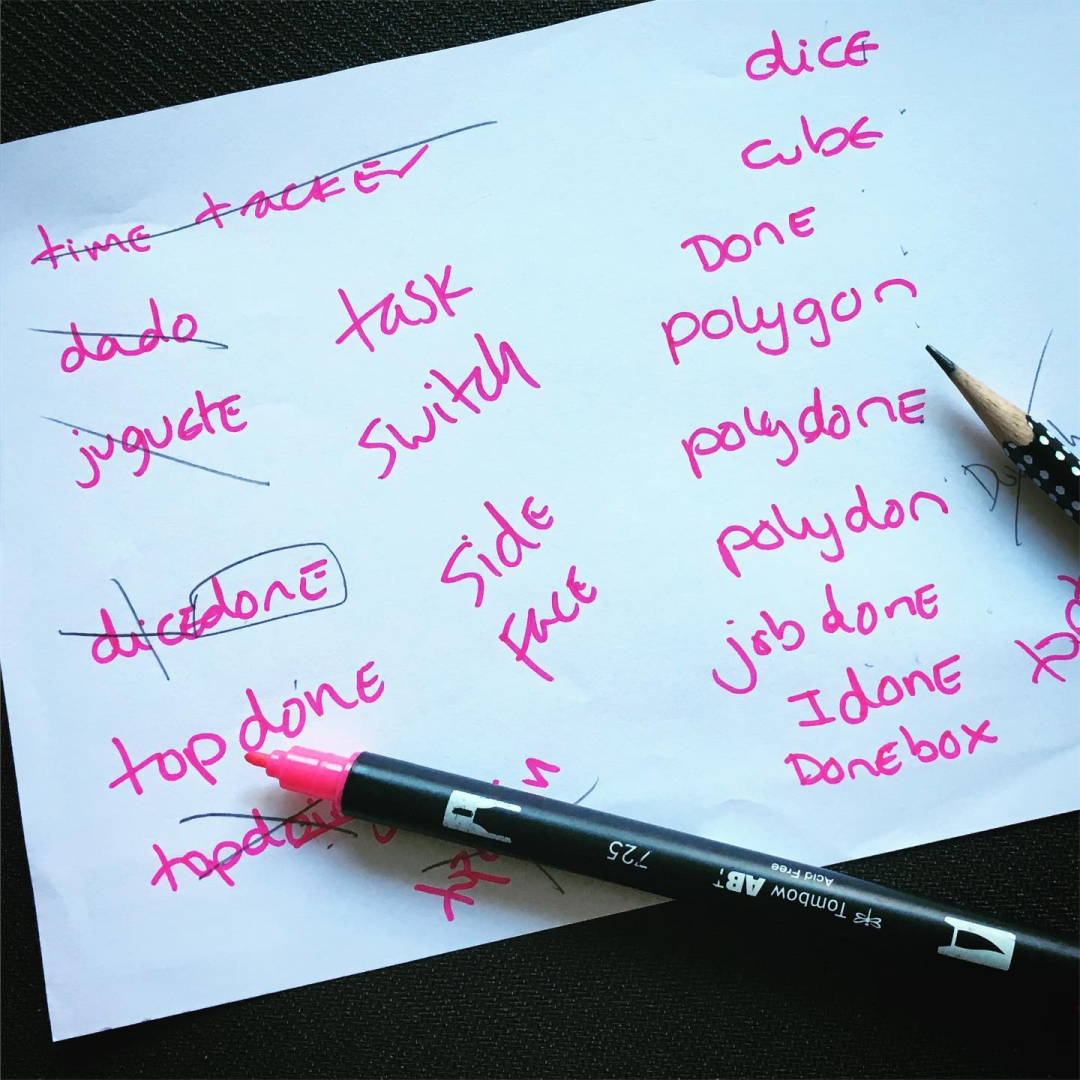 time tracker
dado
juguete
dicedone
topdone
task
switch
side
FacE
dice
cubE
DonE
polygon
polydonE
polydon
job donE
IdonE
DonEbox
725
Tombow ABT
Acid Free